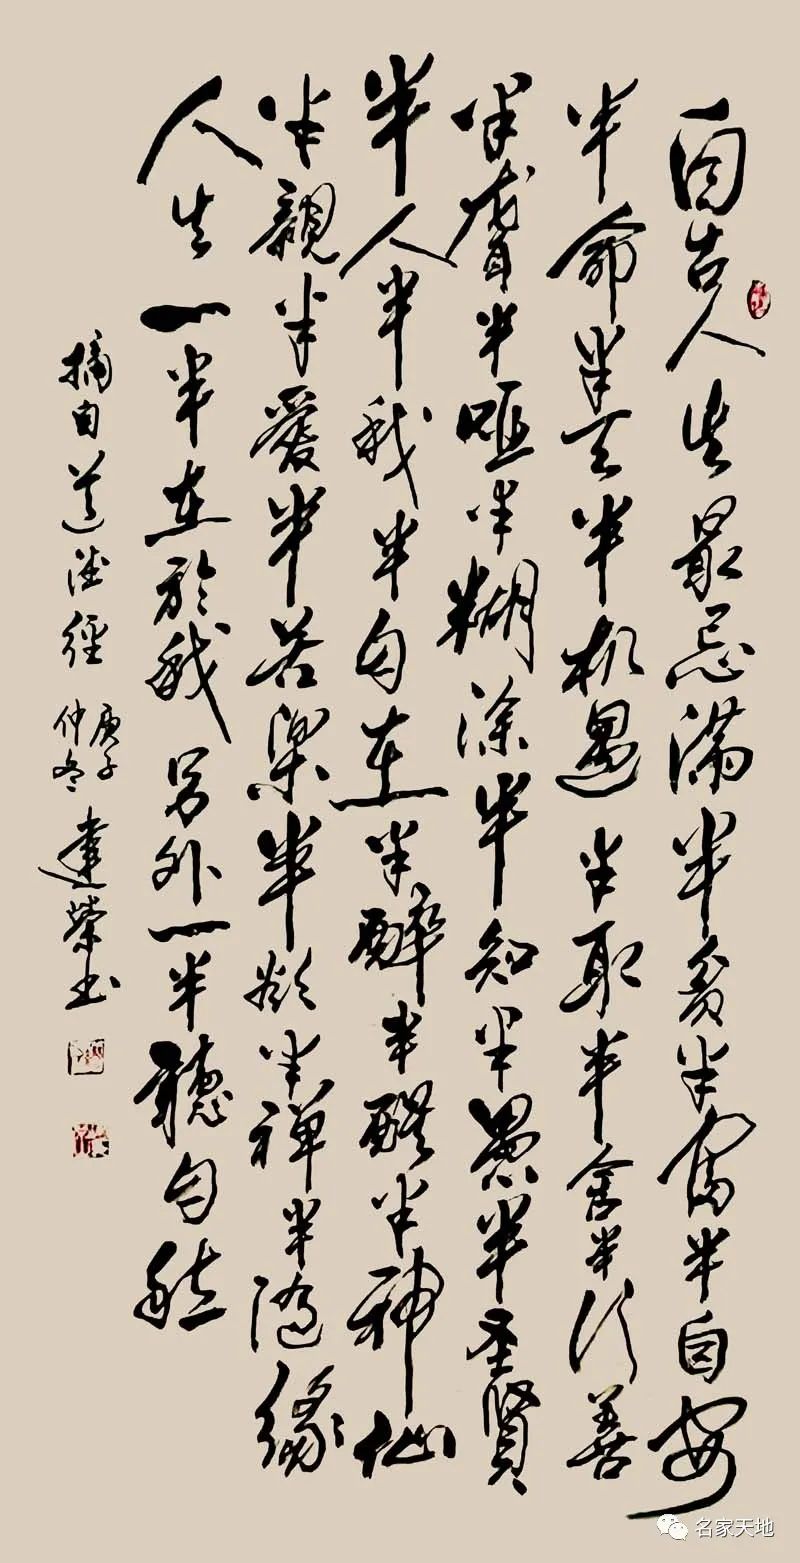 自古人生最忌滿半貧半富半自安
半命半天半机遇半取半舍半行善
半聾半啞半糊涂半知半愚半圣賢
半人半我半自在半醉半醒半神仙
半親半愛半苦樂半俗半禪半隨緣
人生一半在於我另外一半聽自然
摘自道德經
庚子
仲冬
達榮书
名家天地